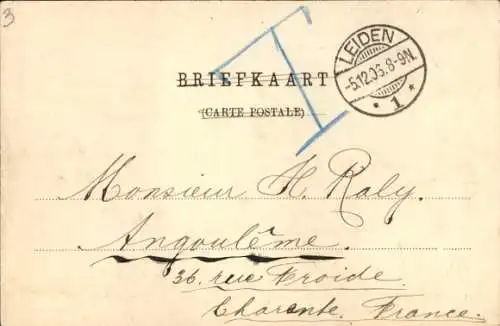 3
T
BRIEFKAART
(CARTE POSTALE)
LEIDEN
-5.12.05.8-9N.
* 1 *
Monsieur H. Raly.
Angoulême.
36. rue Froide.
Charente. France.